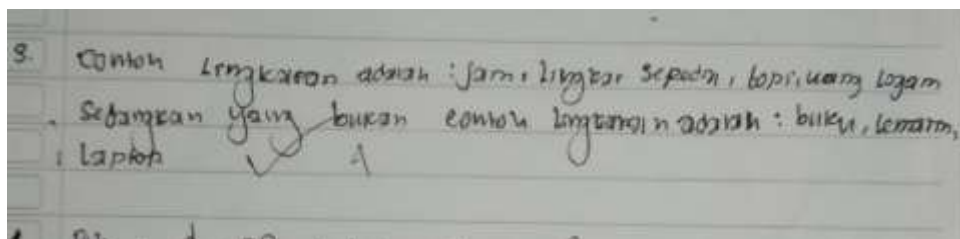 3. Contoh Lingkaran adalah : Jam, lingkar sepeda, topi, uang logam
Sedangkan yang bukan contoh lingkaran adalah : buku, lemari,
Laptop